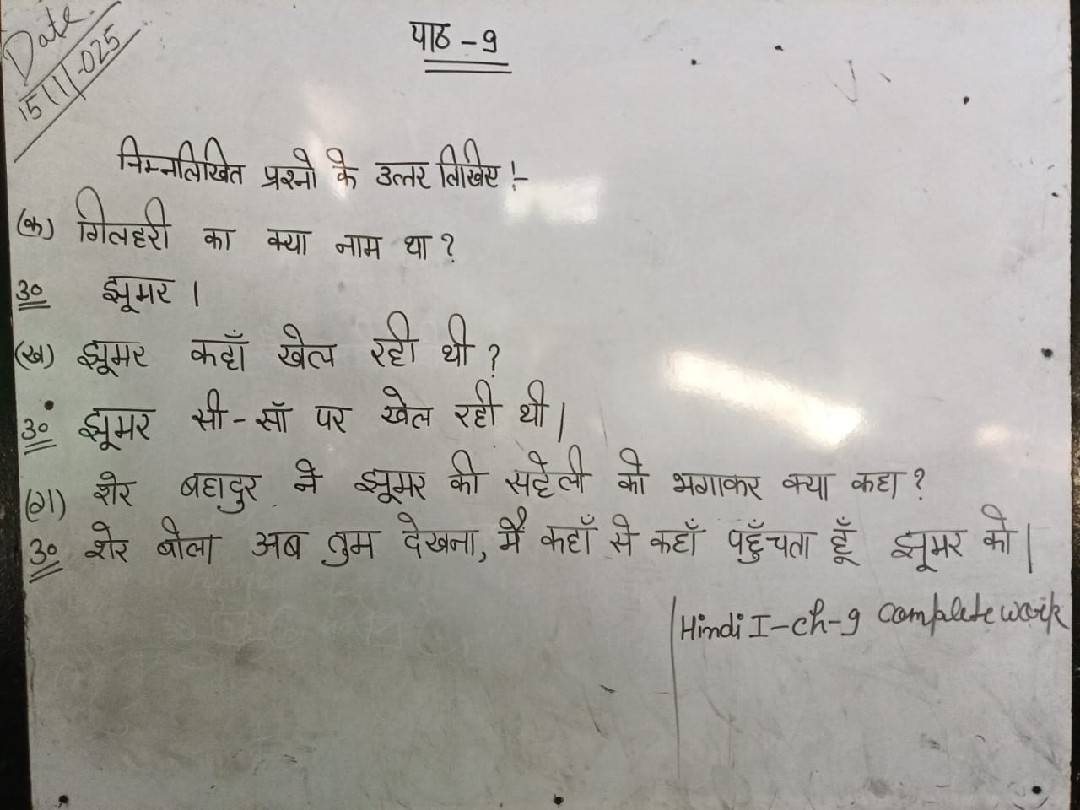 Date.
15/11-025
पाठ - 9
निम्नलिखित प्रश्नो के उत्तर लिखिए :-
(क) गिलहरी का क्या नाम था ?
उ० झूमर ।
(ख) झूमर कहाँ खेल रही थी ?
उ० झूमर सी-सॉ पर खेल रही थी।
(ग) शेर बहादुर ने झूमर की सहेली को भगाकर क्या कहा ?
उ० शेर बोला अब तुम देखना, मैं कहाँ से कहाँ पहुँचता हूँ झूमर को।
Hindi I-ch-9 complete work